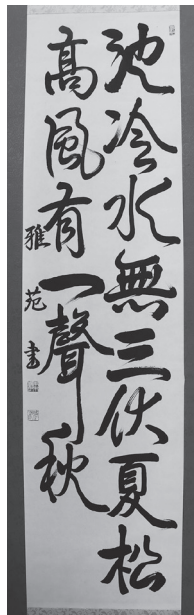 池冷水無三伏夏松
高風有一聲秋
雅苑書